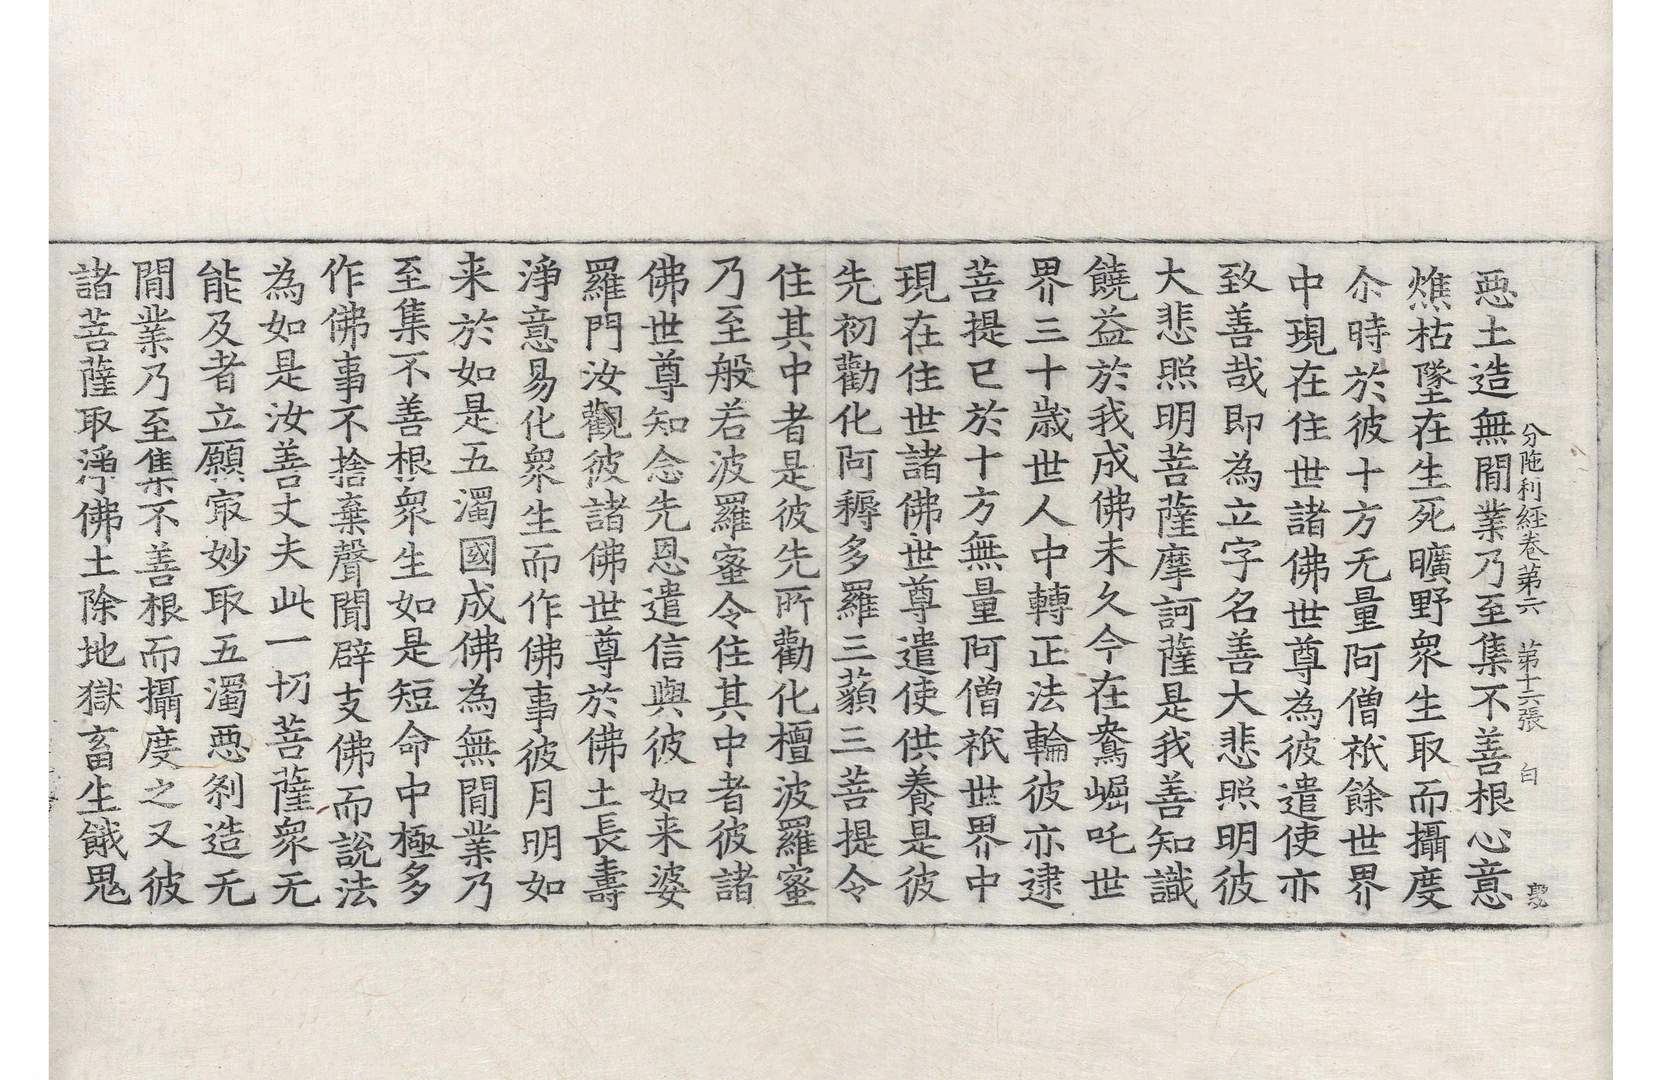 分陁利經卷第六　第十六張　白
惡土造無閒業乃至集不善根心意
燋枯墜在生死曠野衆生取而攝度
尒時於彼十方无量阿僧祇餘世界
中現在住世諸佛世尊為彼遣使亦
致善哉即為立字名善大悲照明彼
大悲照明菩薩摩訶薩是我善知識
饒益於我成佛未久今在鴦崛吒世
界三十歲世人中轉正法輪彼亦逮
菩提已於十方無量阿僧祇世界中
現在住世諸佛世尊遣使供養是彼
先初勸化阿耨多羅三藐三菩提令
住其中者是彼先所勸化檀波羅蜜
乃至般若波羅蜜令住其中者彼諸
佛世尊知念先恩遣信與彼如来婆
羅門汝觀彼諸佛世尊於佛土長壽
淨意易化衆生而作佛事彼月明如
来於如是五濁國成佛為無閒業乃
至集不善根衆生如是短命中極多
作佛事不捨棄聲聞辟支佛而說法
為如是汝善丈夫此一切菩薩衆无
能及者立願㝡妙取五濁惡刹造无
閒業乃至集不善根而攝度之又彼
諸菩薩取淨佛土除地獄畜生餓鬼